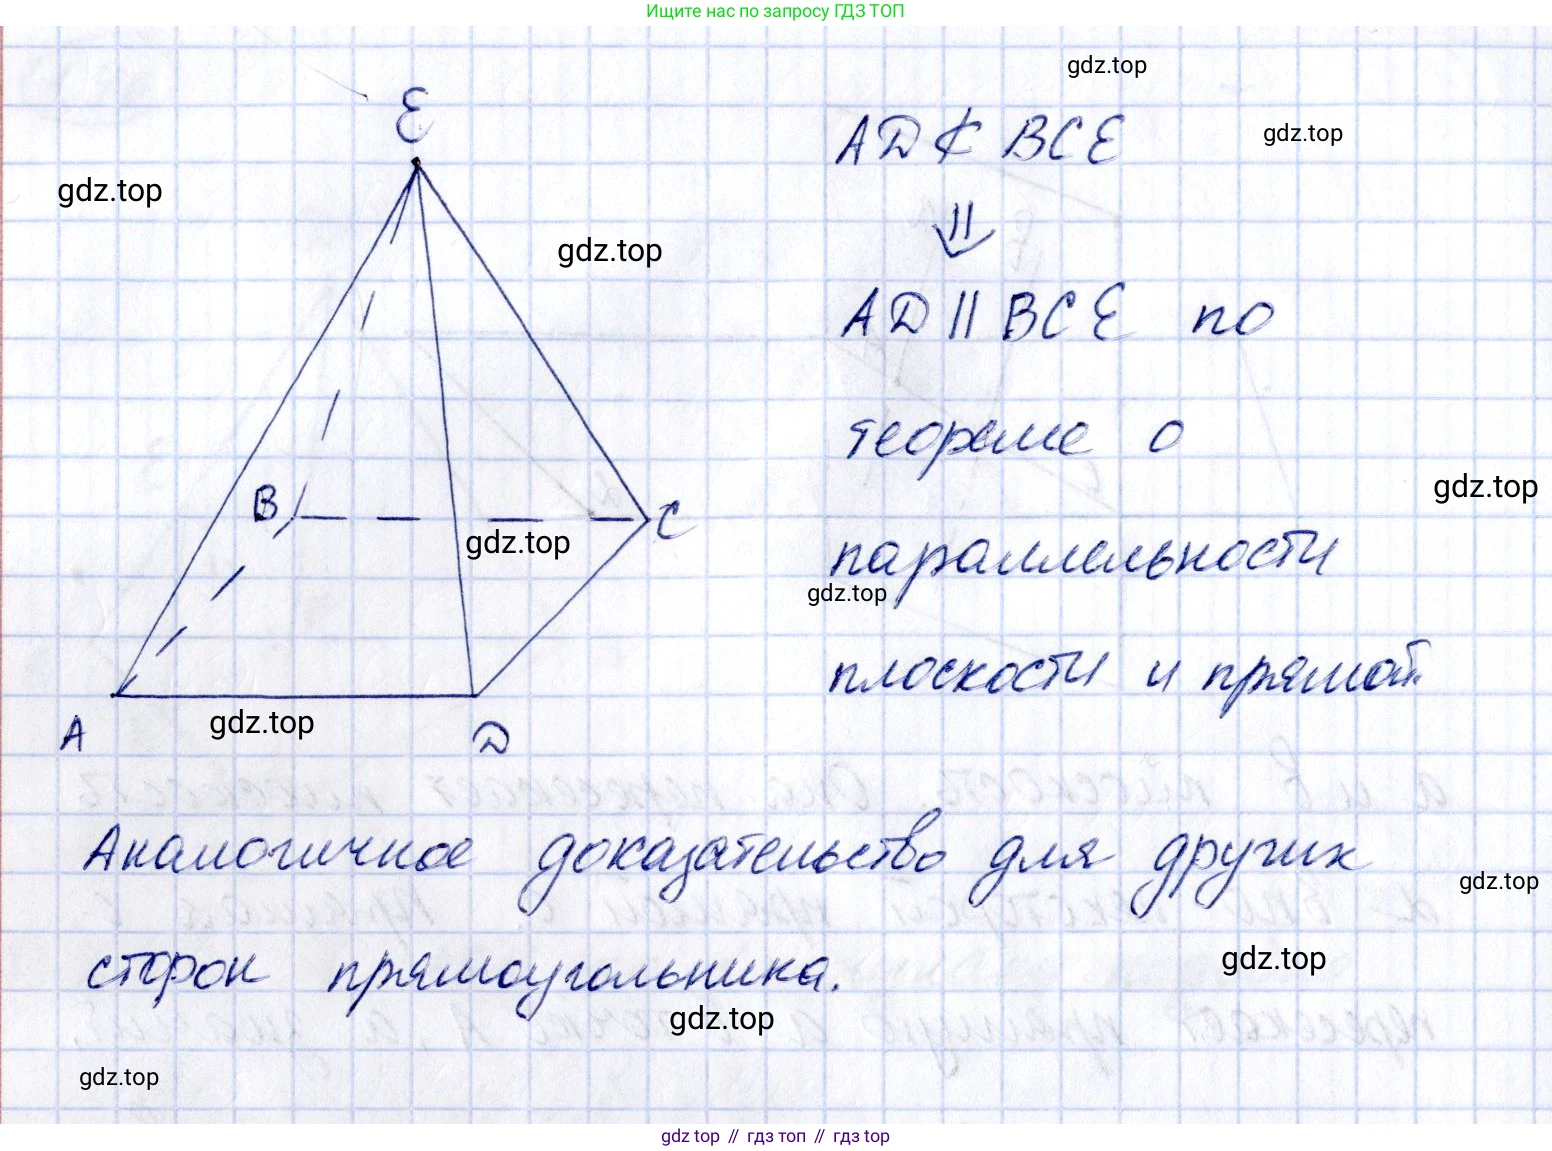 Ищите нас по запросу ГДЗ ТОП
gdz.top
ε
AD ⊄ BCE
gdz.top
gdz.top
⇓
gdz.top
AD || BCE по
теореме о
gdz.top
B
C
gdz.top
параллельности
gdz.top
плоскости и прямой.
A
gdz.top
D
Аналогичное доказательство для других
gdz.top
сторон прямоугольника.
gdz.top
gdz.top
gdz.top
gdz top // гдз топ // гдз top